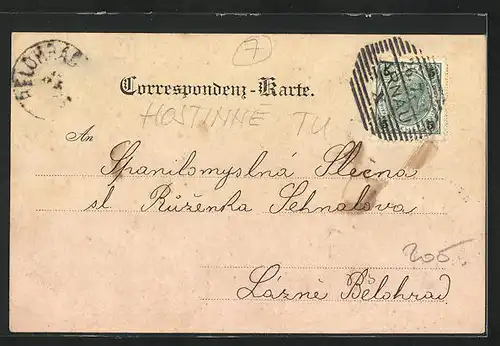 7
BĚLOHRAD
Correspondenz-Karte.
HOSTINNÉ TU
An
Spanilomyslná Slečna
sl Růženka Sehnalova
205.
Lázně Bělohrad